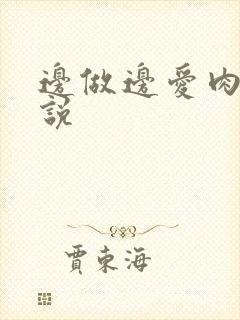 邊做邊愛肉
說
賈東海